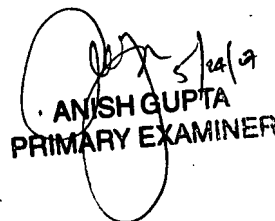 5/24/07
ANISH GUPTA
PRIMARY EXAMINER